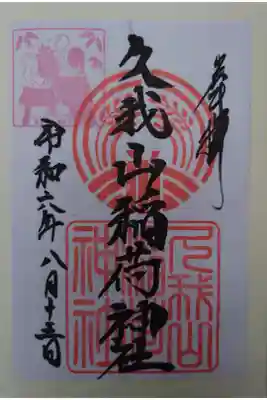 奉拝
久我山稲荷神社
令和六年八月十三日
久我山
神社